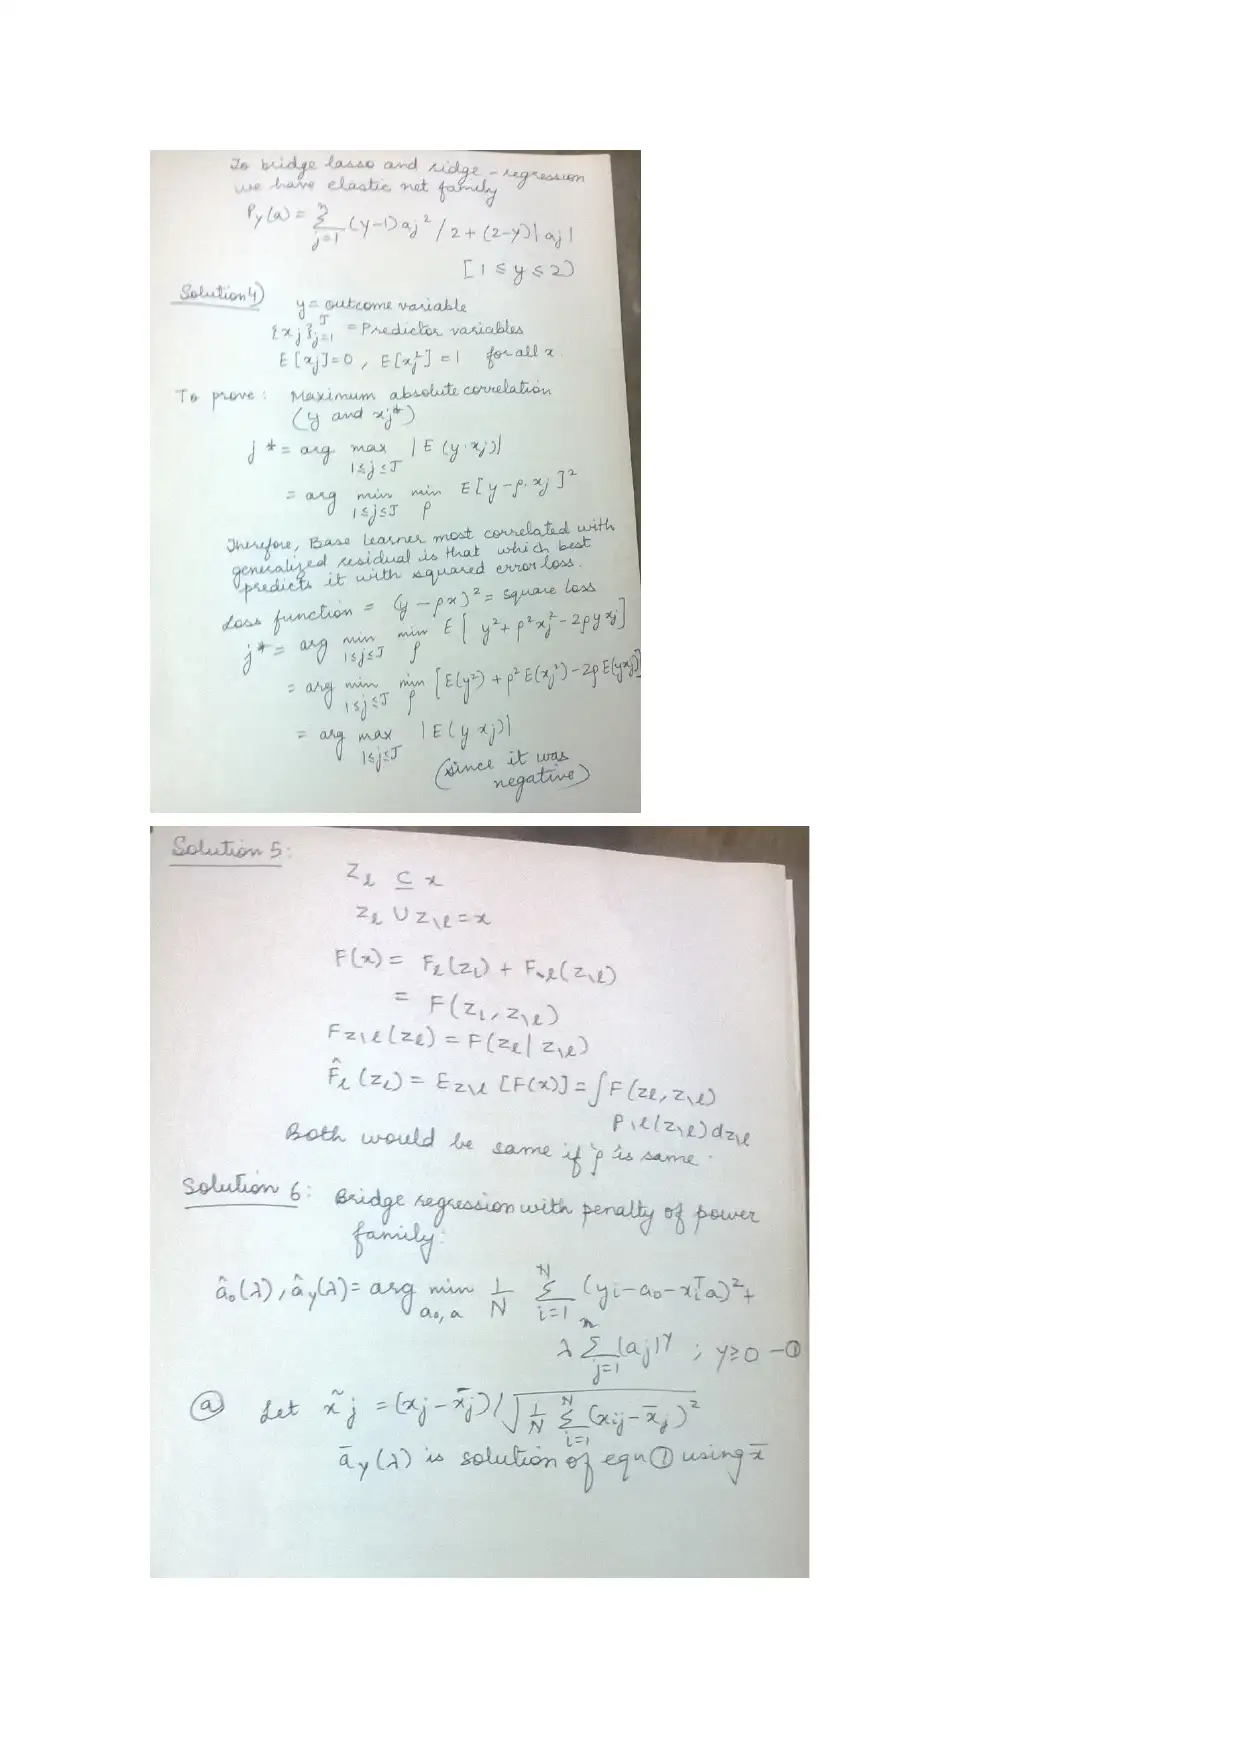 To bridge lasso and ridge-regression
we have elastic net family
Pγ(a) = Σ_{j=1}^{n} (γ-1) aj² / 2 + (2-γ) |aj|
[1 ≤ γ ≤ 2)
Solution 4)
y = outcome variable
{xj}_{j=1}^{J} = Predictor variables
E[xj]=0, E[xj²]=1 for all x.
To prove: Maximum absolute correlation
(y and xj*)
j* = arg max_{1≤j≤J} |E(y·xj)|
= arg min_{1≤j≤J} min_ρ E[y-ρ.xj]²
Therefore, Base learner most correlated with
generalized residual is that which best
predicts it with squared error loss.
Loss function = (y-ρx)² = square loss
j* = arg min_{1≤j≤J} min_ρ E[y²+ρ²xj²-2ρyxj]
= arg min_{1≤j≤J} min_ρ [E(y²)+ρ²E(xj²)-2ρE(yxj)]
= arg max_{1≤j≤J} |E(yxj)|
(since it was
negative)
Solution 5:
Zl ⊆ x
Zl ∪ Z\l = x
F(x) = Fl(Zl) + F\l(Z\l)
= F(Zl, Z\l)
FZ\l(Zl) = F(Zl| Z\l)
F̂l(Zl) = EZ\l [F(x)] = ∫F(Zl, Z\l)
P\l(Z\l)dZ\l
Both would be same if ρ is same.
Solution 6: Bridge regression with penalty of power
family:
â₀(λ), âγ(λ) = arg min_{a₀,a} 1/N Σ_{i=1}^{N} (yi-a₀-xiᵀa)²+
λ Σ_{j=1}^{n} |aj|^γ ; γ≥0 -①
ⓐ Let x̃j = (xj-x̄j)/√(1/N Σ_{i=1}^{N} (xij-x̄j)²
āγ(λ) is solution of eqn ① using x̄